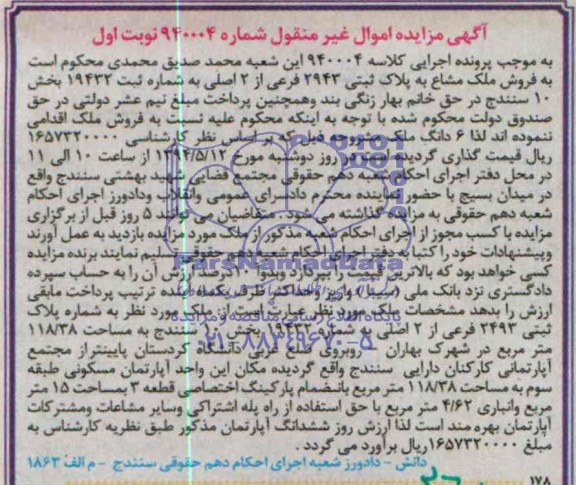 آگهی مزایده اموال غیر منقول شماره ۹۴۰۰۰۴ نوبت اول
به موجب پرونده اجرایی کلاسه ۹۴۰۰۰۴ این شعبه محمد صدیق محمدی محکوم است
به فروش ملک مشاع به پلاک ثبتی ۲۹۴۳ فرعی از ۲ اصلی به شماره ثبت ۱۹۴۳۲ بخش
۱۰ سنندج در حق خانم بهار زنگی بند وهمچنین پرداخت مبلغ نیم عشر دولتی در حق
صندوق دولت محکوم شده با توجه به اینکه محکوم علیه نسبت به فروش ملک اقدامی
ننموده اند لذا ۶ دانگ ملک مشروحه ذیل که بر اساس نظر کارشناسی ۱۶۵۷۳۲۰۰۰۰
ریال قیمت گذاری گردیده است در روز دوشنبه مورخ ۱۳۹۴/۵/۱۲ از ساعت ۱۰ الی ۱۱
در محل دفتر اجرای احکام شعبه دهم حقوقی مجتمع قضایی شهید بهشتی سنندج واقع
در میدان بسیج با حضور نماینده محترم دادسرای عمومی وانقلاب ودادورز اجرای احکام
شعبه دهم حقوقی به مزایده گذاشته می شود . متقاضیان می توانند ۵ روز قبل از برگزاری
مزایده با کسب مجوز از اجرای احکام شعبه مذکور از ملک مورد مزایده بازدید به عمل آورند
وپیشنهادات خود را کتبا به دفتر اجرای احکام شعبه دهم حقوقی تسلیم نمایند برنده مزایده
کسی خواهد بود که بالاترین قیمت را بپردازد وبدوا ۱۰ درصد ارزش آن را به حساب سپرده
دادگستری نزد بانک ملی (سیبا) واریز وحداکثر ظرف یکماه بنده ترتیب پرداخت مابقی
ارزش را بدهد مشخصات ملک مورد نظر عبارت است از ملک مورد نظر به شماره پلاک
ثبتی ۲۴۹۳ فرعی از ۲ اصلی به شماره ۱۹۴۳۲ بخش ۱۰ سنندج به مساحت ۱۱۸/۳۸
متر مربع در شهرک بهاران - روبروی ضلع غربی دانشگاه کردستان پایینتراز مجتمع
آپارتمانی کارکنان دارایی سنندج واقع گردیده مکان این واحد آپارتمان مسکونی طبقه
سوم به مساحت ۱۱۸/۳۸ متر مربع بانضمام پارکینگ اختصاصی قطعه ۳ بمساحت ۱۵ متر
مربع وانباری ۴/۶۲ متر مربع با حق استفاده از راه پله اشتراکی وسایر مشاعات ومشترکات
آپارتمان بهره مند است لذا ارزش روز ششدانگ آپارتمان مذکور طبق نظریه کارشناس به
مبلغ ۱۶۵۷۳۲۰۰۰۰ریال برآورد می گردد .
دانش - دادورز شعبه اجرای احکام دهم حقوقی سنندج - م الف ۱۸۶۳
۱۷۸
ParsNamadData
۰۲۱-۸۸۳۴۹۶۷۰-۵